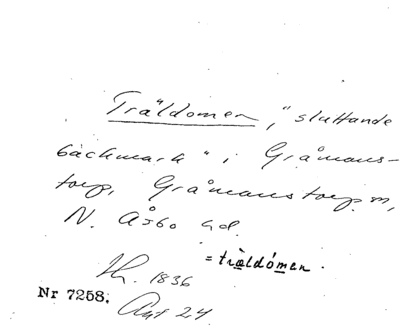 Träldomen, "sluttande
backmark" i Gråmans-
torp, Gråmanstorp sn,
N. Åsbo hd.
= träldómen.
1836
Nr 7258.
24